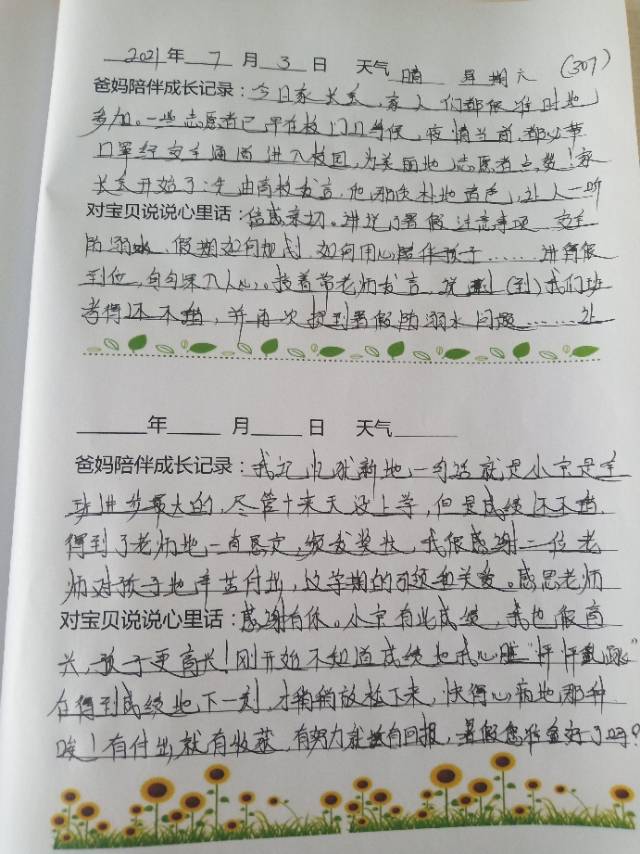 2021年 7 月 3 日 天气 晴 星期六 (307)
爸妈陪伴成长记录:今日家长会,家人们都很准时地
参加。一些志愿者已早在校门口等候,疫情当前,都必带
口罩经安全通道进入校园,为美丽地志愿者点赞!家
长会开始了:先由高校发言,他那质朴地古声,让人一听
对宝贝说说心里话:倍感亲切。讲说了暑假注意事项 安全
防溺水、假期如何规划 如何用心陪伴孩子……讲解很
到位,句句深入人心。接着常老师发言,说 (到)我们班
考得还不错,并再次提到暑假防溺水问题……让
年 月 日 天气
爸妈陪伴成长记录:我记忆犹新地一句话就是小京是全
班进步最大的,尽管十来天没上学,但是成绩还不错,
得到了老师地一直恩宠,颁发奖状,我很感谢二位老
师对孩子地辛苦付出,这学期的 和关爱。感恩老师
对宝贝说说心里话:感谢有你。小京有此成绩,我也很高
兴,孩子更高兴!刚开始不知道成绩地我心脏“怦怦乱跳”
在得到成绩地下一刻,才稍稍放松下来,快得心病地那种
唉!有付出就有收获,有努力就有回报,暑假您准备好了吗?